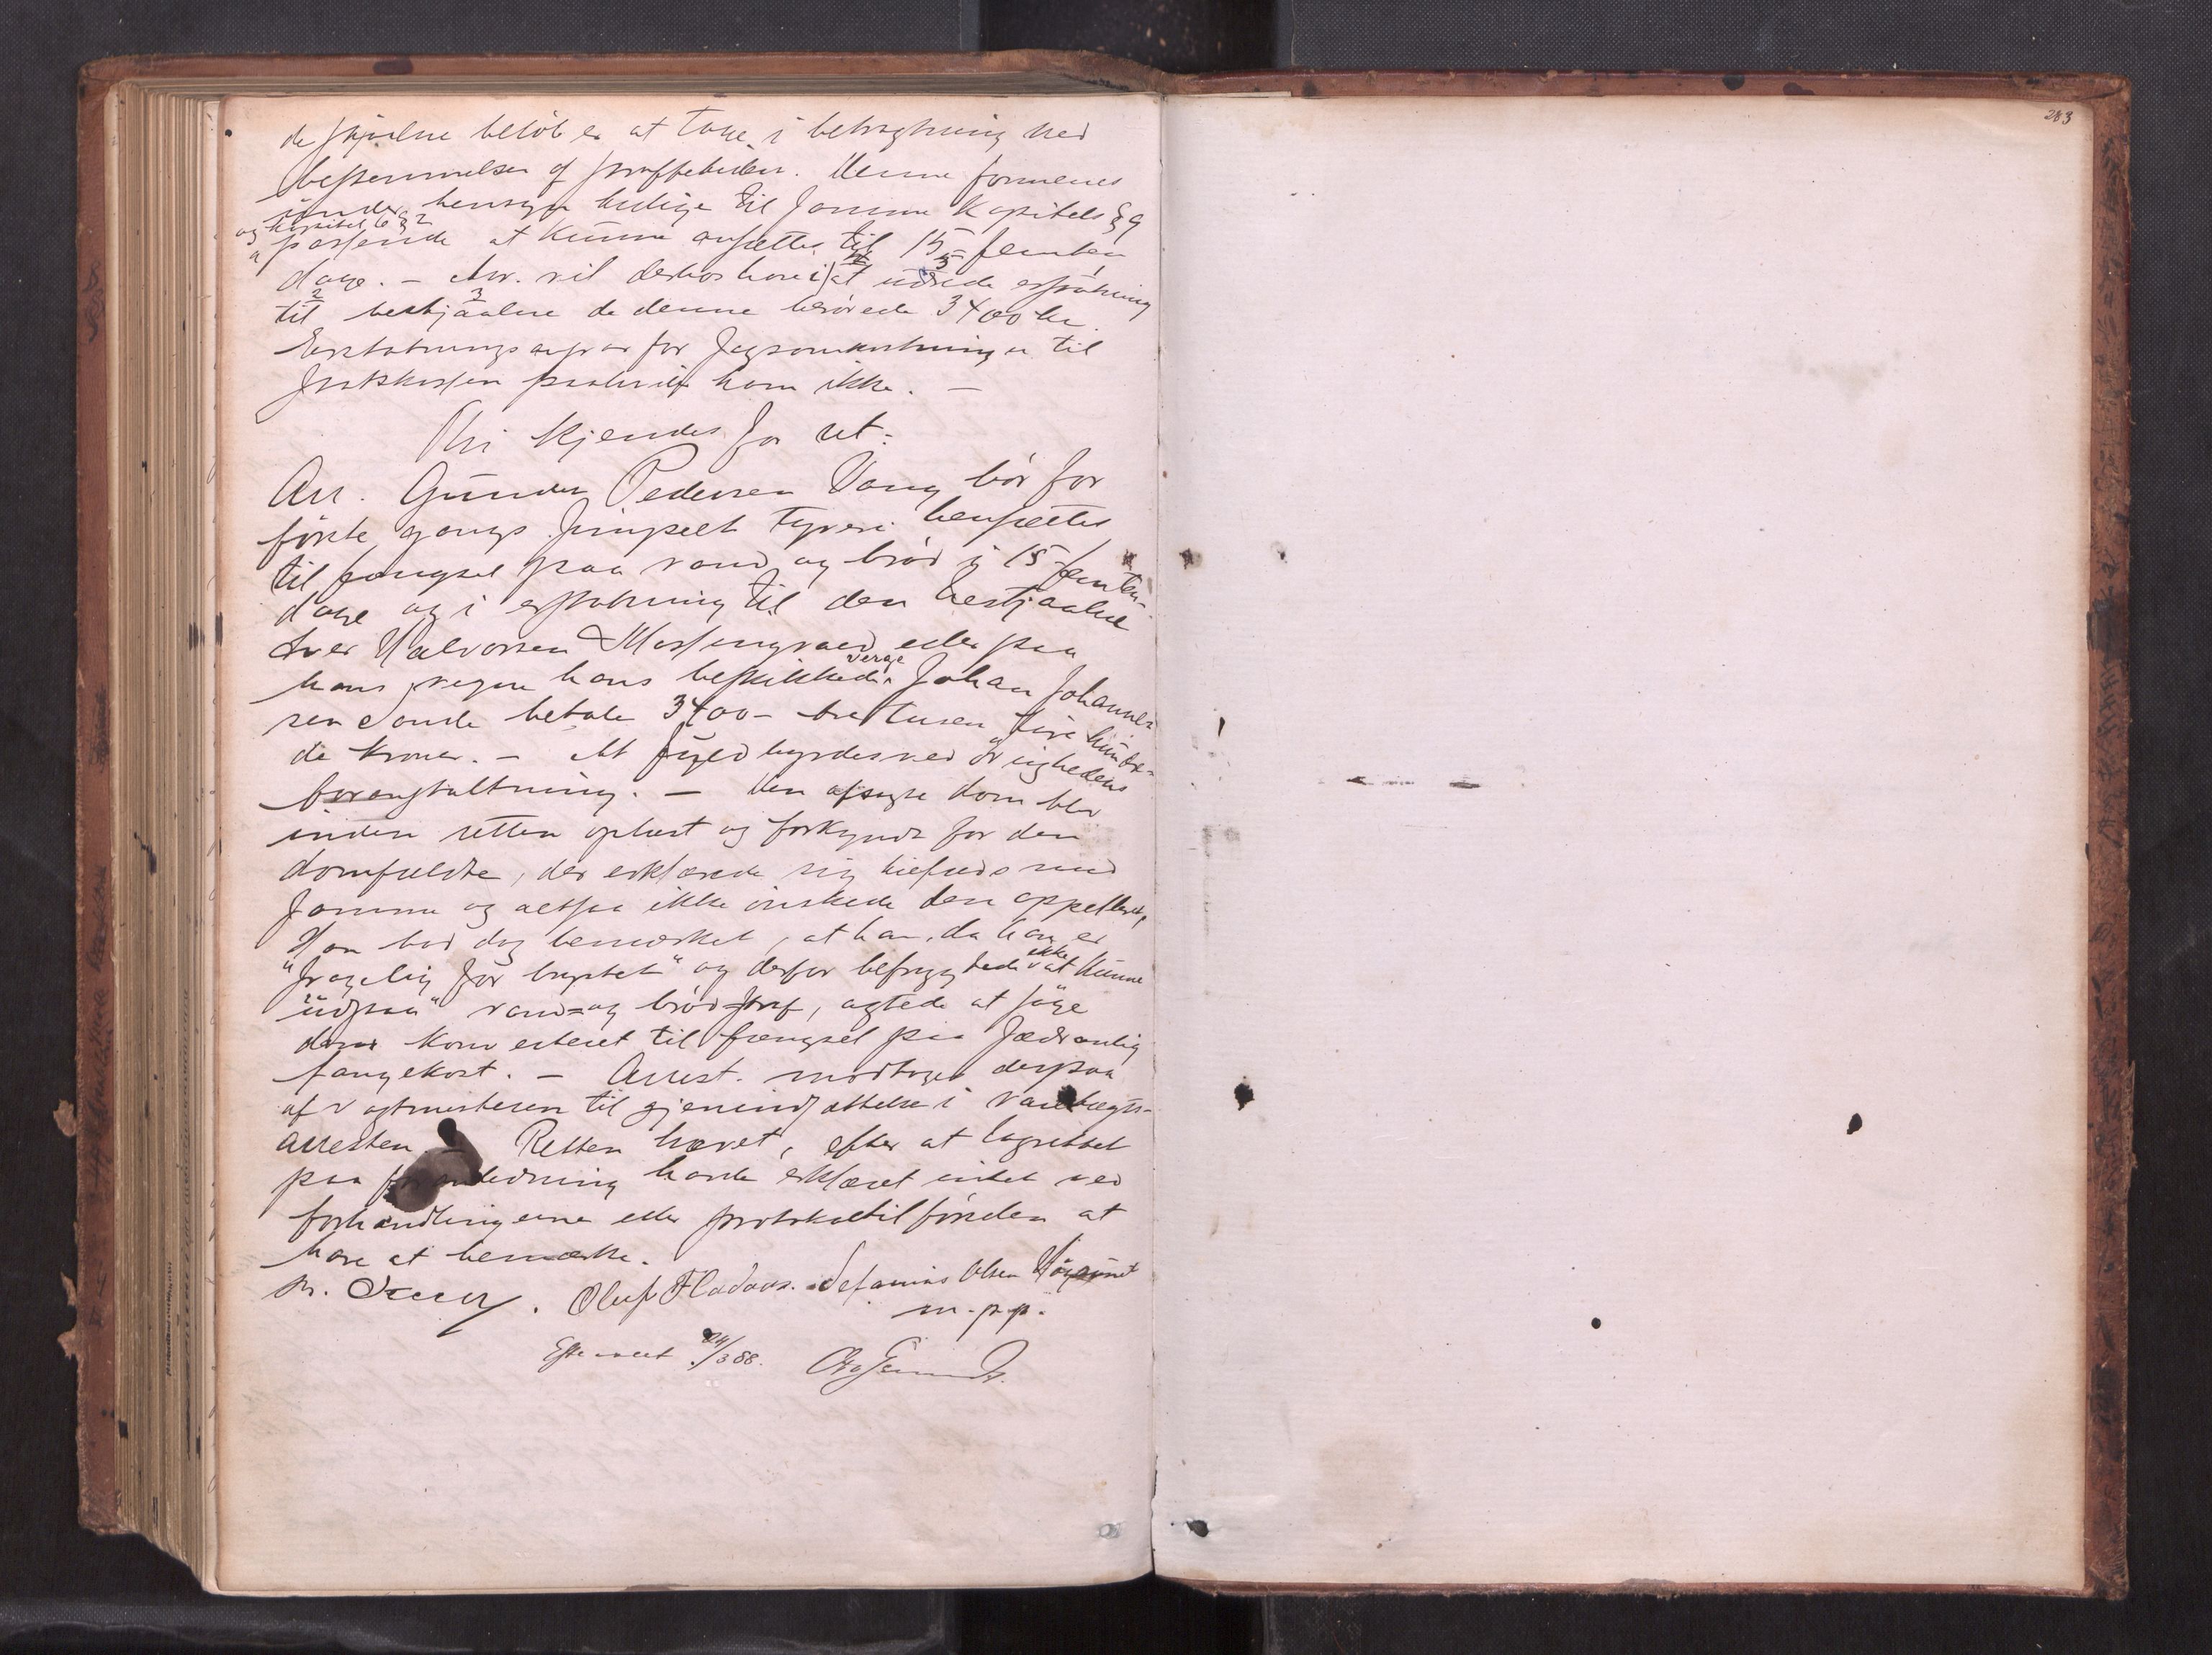 283
de stjaalne beløb er at tage i betragtning ved
bestemmelsen af straffetiden. Denne formenes
under hensyn tillige til samme kapitels § 9
og kapitel 6 § 2
passende at kunne ansættes til 15 - femten
dage. - Arr. vil derhos have at udrede erstatning
til bestjaalne de denne berøvede 3400 kr.
Erstatningsansvar for sagsomkostninger til
statskassen paahviler ham ikke. -
Thi kjendes for ret:
Arr. Gunder Pedersen Vang bør for
første gangs simpelt tyveri hensættes
til fængsel paa vand og brød i 15 - femten -
dage og i erstatning til den bestjaalne
Iver Halvorsen Mossengraed eller paa
hans vegne hans beskikkede verge Johan Johannes-
sen Sande betale 3400 - tre tusen fire hundre-
de kroner. - At fuldbyrdes ved øvrighedens
foranstaltning. - Den afsagte dom blev
inden retten oplæst og forkyndt for den
domfældte, der erklærede sig tilfreds med
samme og altsaa ikke ønskede den appelleret,
Han bad dog bemerket, at han, da han er
"svagelig for brystet" og derfor befrygtede ikke at kunne
"udstaa" vand- og brød-straf, agtede at søge
denne konverteret til fængsel paa sædvanlig
fangekost. - Arrest. modtoges derpaa
af vagtmesteren til gjenindsættelse i varetægts-
arresten. - Retten hævet, efter at lagrettet
paa foranledning havde erklæret intet ved
forhandlingerne eller protokoltilførselen at
have at bemærke.
Oluf Fladaas. Sefanias Olsen
m. p. p.
Eftersеet 24/3 88.